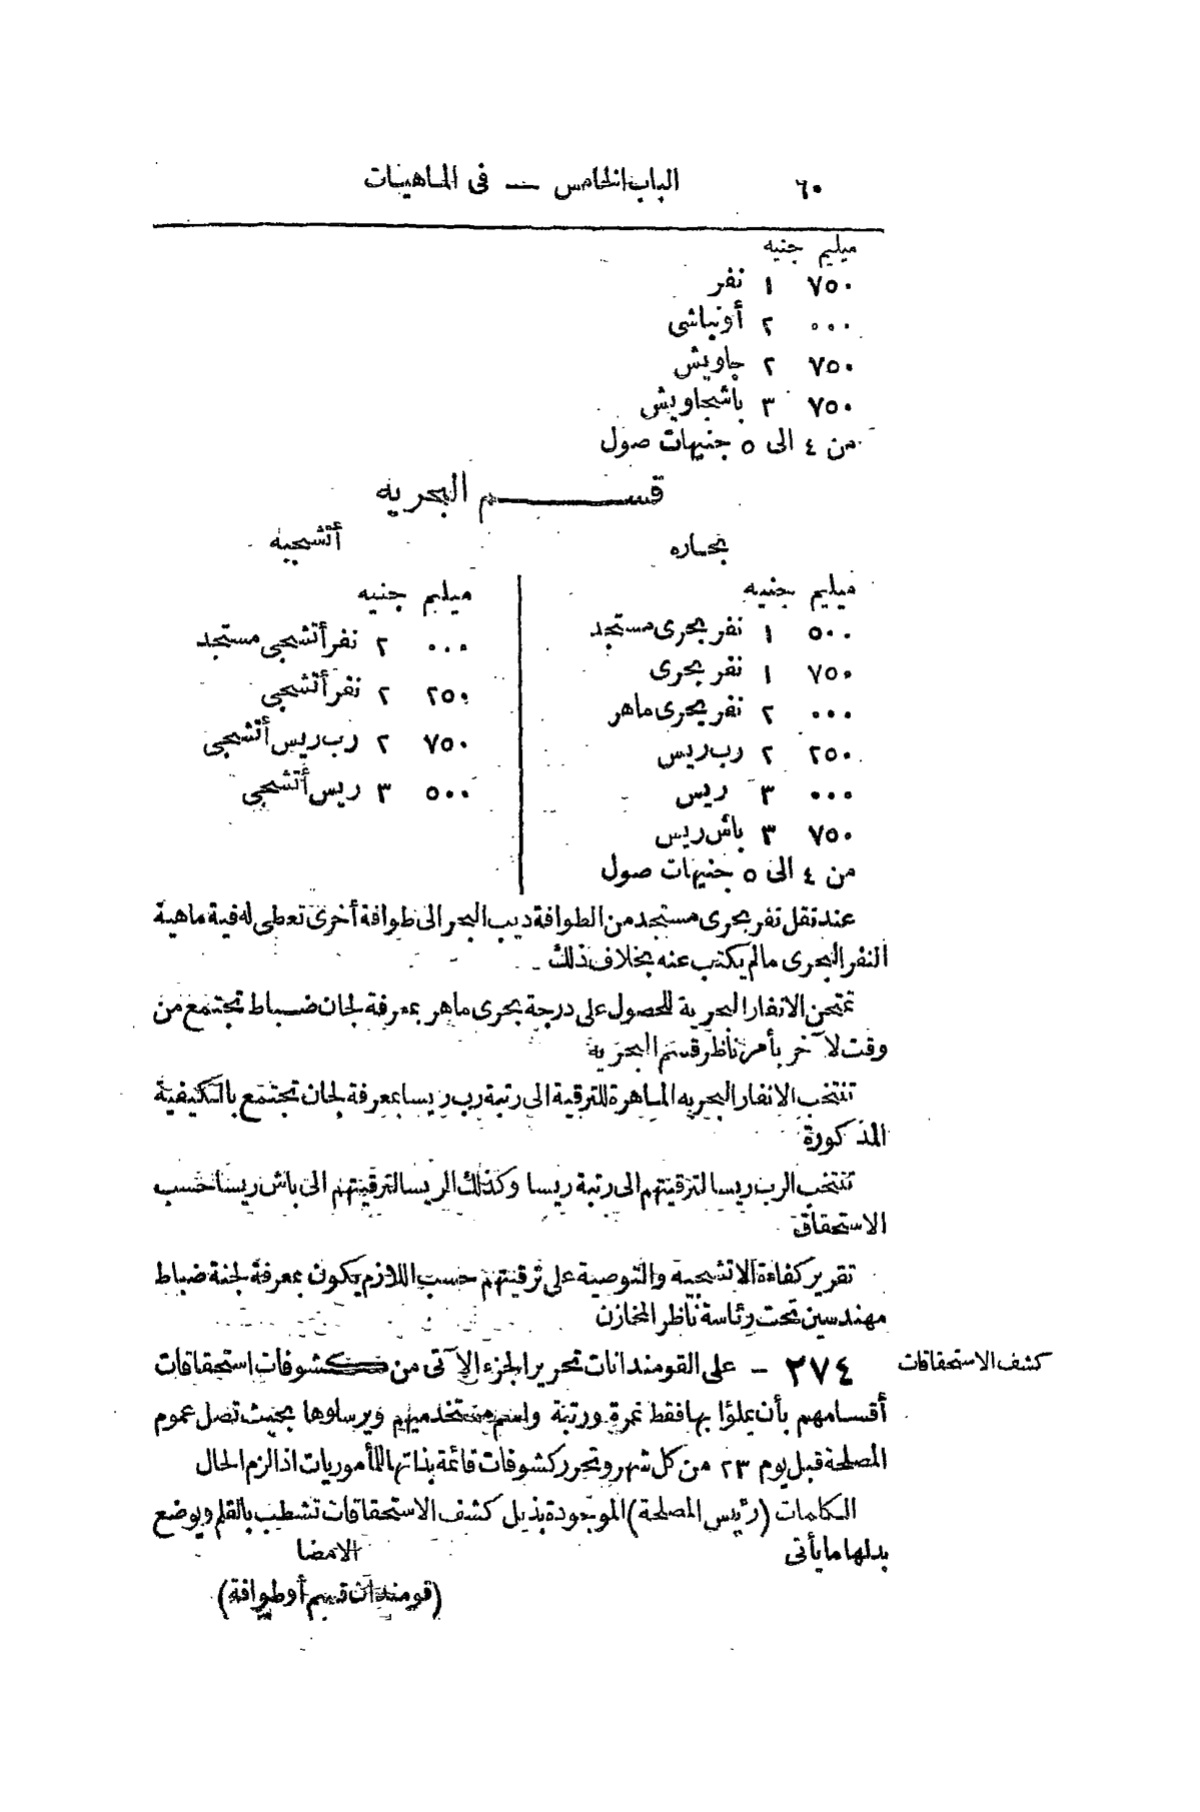 ٦٠ الباب الخامس — فى الماهيات
ميليم جنيه
٧٥٠ ١ نفر
٠٠٠ ٢ أونباشى
٧٥٠ ٢ جاويش
٧٥٠ ٣ باشجاويش
من ٤ الى ٥ جنيهات صول
قسم البحريه
بحاره
ميليم جنيه
٥٠٠ ١ نفر بحرى مستجد
٧٥٠ ١ نفر بحرى
٠٠٠ ٢ نفر بحرى ماهر
٢٥٠ ٢ رب ريس
٠٠٠ ٣ ريس
٧٥٠ ٣ باش ريس
من ٤ الى ٥ جنيهات صول
أتشجيه
ميليم جنيه
٠٠٠ ٢ نفر أتشجى مستجد
٢٥٠ ٢ نفر أتشجى
٧٥٠ ٢ رب ريس أتشجى
٥٠٠ ٣ ريس أتشجى
عند نقل نفر بحرى مستجد من الطوافة ديب البحر الى طوافة أخرى تعطى له فية ماهية
النفر البحرى مالم يكتب عنه بخلاف ذلك
تمتحن الانفار البحرية للحصول على درجة بحرى ماهر بمعرفة لجان ضباط تجتمع من
وقت لآخر بأمر ناظر قسم البحريه
تنتخب الانفار البحريه الماهرة للترقية الى رتبة رب ريسا بمعرفة لجان تجتمع بالكيفية
المذكورة
تنتخب الرب ريسا لترقيتهم الى رتبة ريسا وكذلك الريسا لترقيتهم الى باش ريسا حسب
الاستحقاق
تقرير كفاءة الاتشجيه والتوصية على ترقيتهم حسب اللازم يكون بمعرفة لجنة ضباط
مهندسين تحت رئاسة ناظر المخازن
كشف الاستحقاقات
٢٧٤ — على القومندانات تحرير الجزء الآتى من كشوفات استحقاقات
أقسامهم بأن يملؤا بها فقط نمرة ورتبة واسم مستخدميهم ويرسلوها بحيث تصل عموم
المصلحة قبل يوم ٢٣ من كل شهر وتحرر كشوفات قائمة بذاتها للمأموريات اذا لزم الحال
الكلمات (رئيس المصلحة) الموجودة بذيل كشف الاستحقاقات تشطب بالقلم ويوضع
بدلها ما يأتى الامضا
(قومندان قسم أو طوافة)